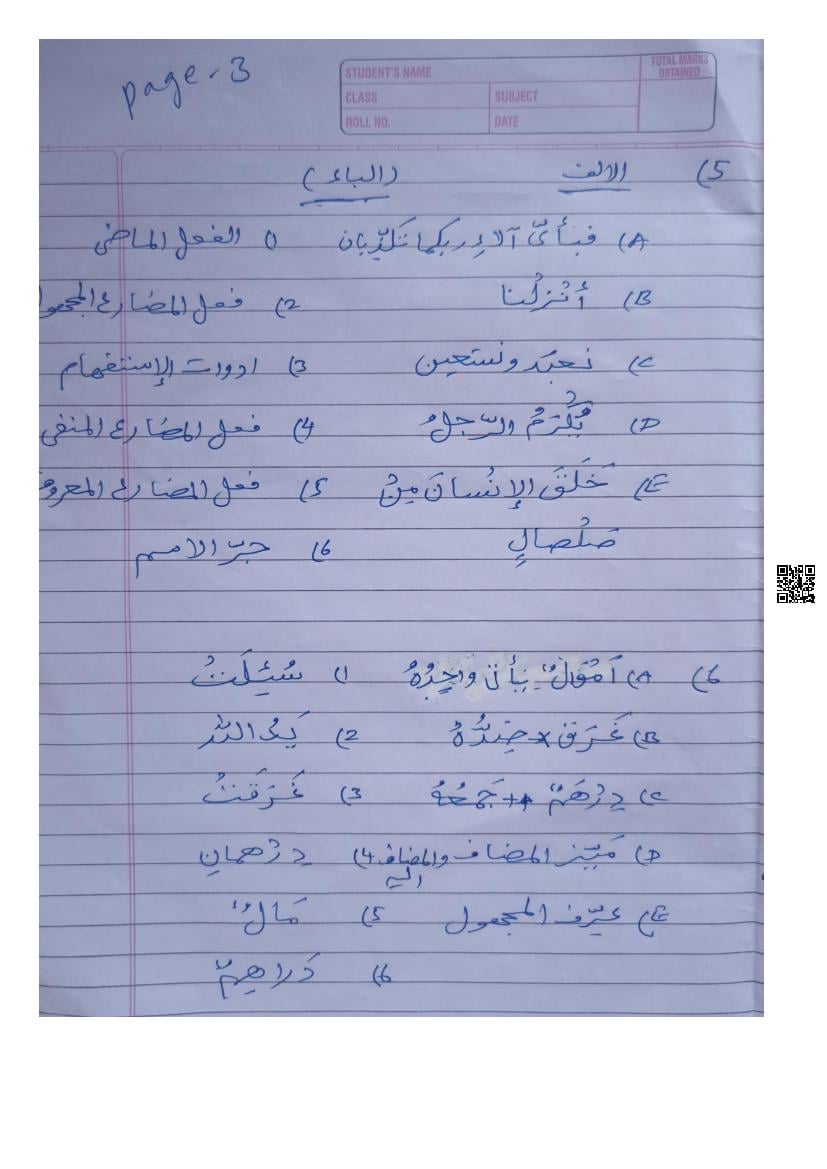 page-3
STUDENT'S NAME
TOTAL MARKS OBTAINED
CLASS
SUBJECT
ROLL NO.
DATE
5) الالف (الباء)
A) فبأىّ آلاء ربكما تكذّبان 1) الفعل الماضى
B) أَنْزَلْنا 2) فعل المضارع المجهو
C) نعبد ونستعين 3) ادوات الإستفهام
D) يُكْرَمُ الرّجلُ 4) فعل المضارع المنفى
E) خَلَقَ الإنْسانَ مِنْ 5) فعل المضارع المعرو
صَلْصالٍ 6) جرّ الاسم
6) A) اَمْوَالٌ واحِدُهُ 1) سُئِلَتْ
B) غَرَقَ × ضِدُّهُ 2) يَدُ الله
C) دِرْهَمٌ ++ جَمْعُهُ 3) غَرَقَتْ
D) مَيّز المضاف والمضاف اليه 4) دِرْهمانِ
E) عرّف المجهول 5) مَالٌ
6) دَراهِمٌ